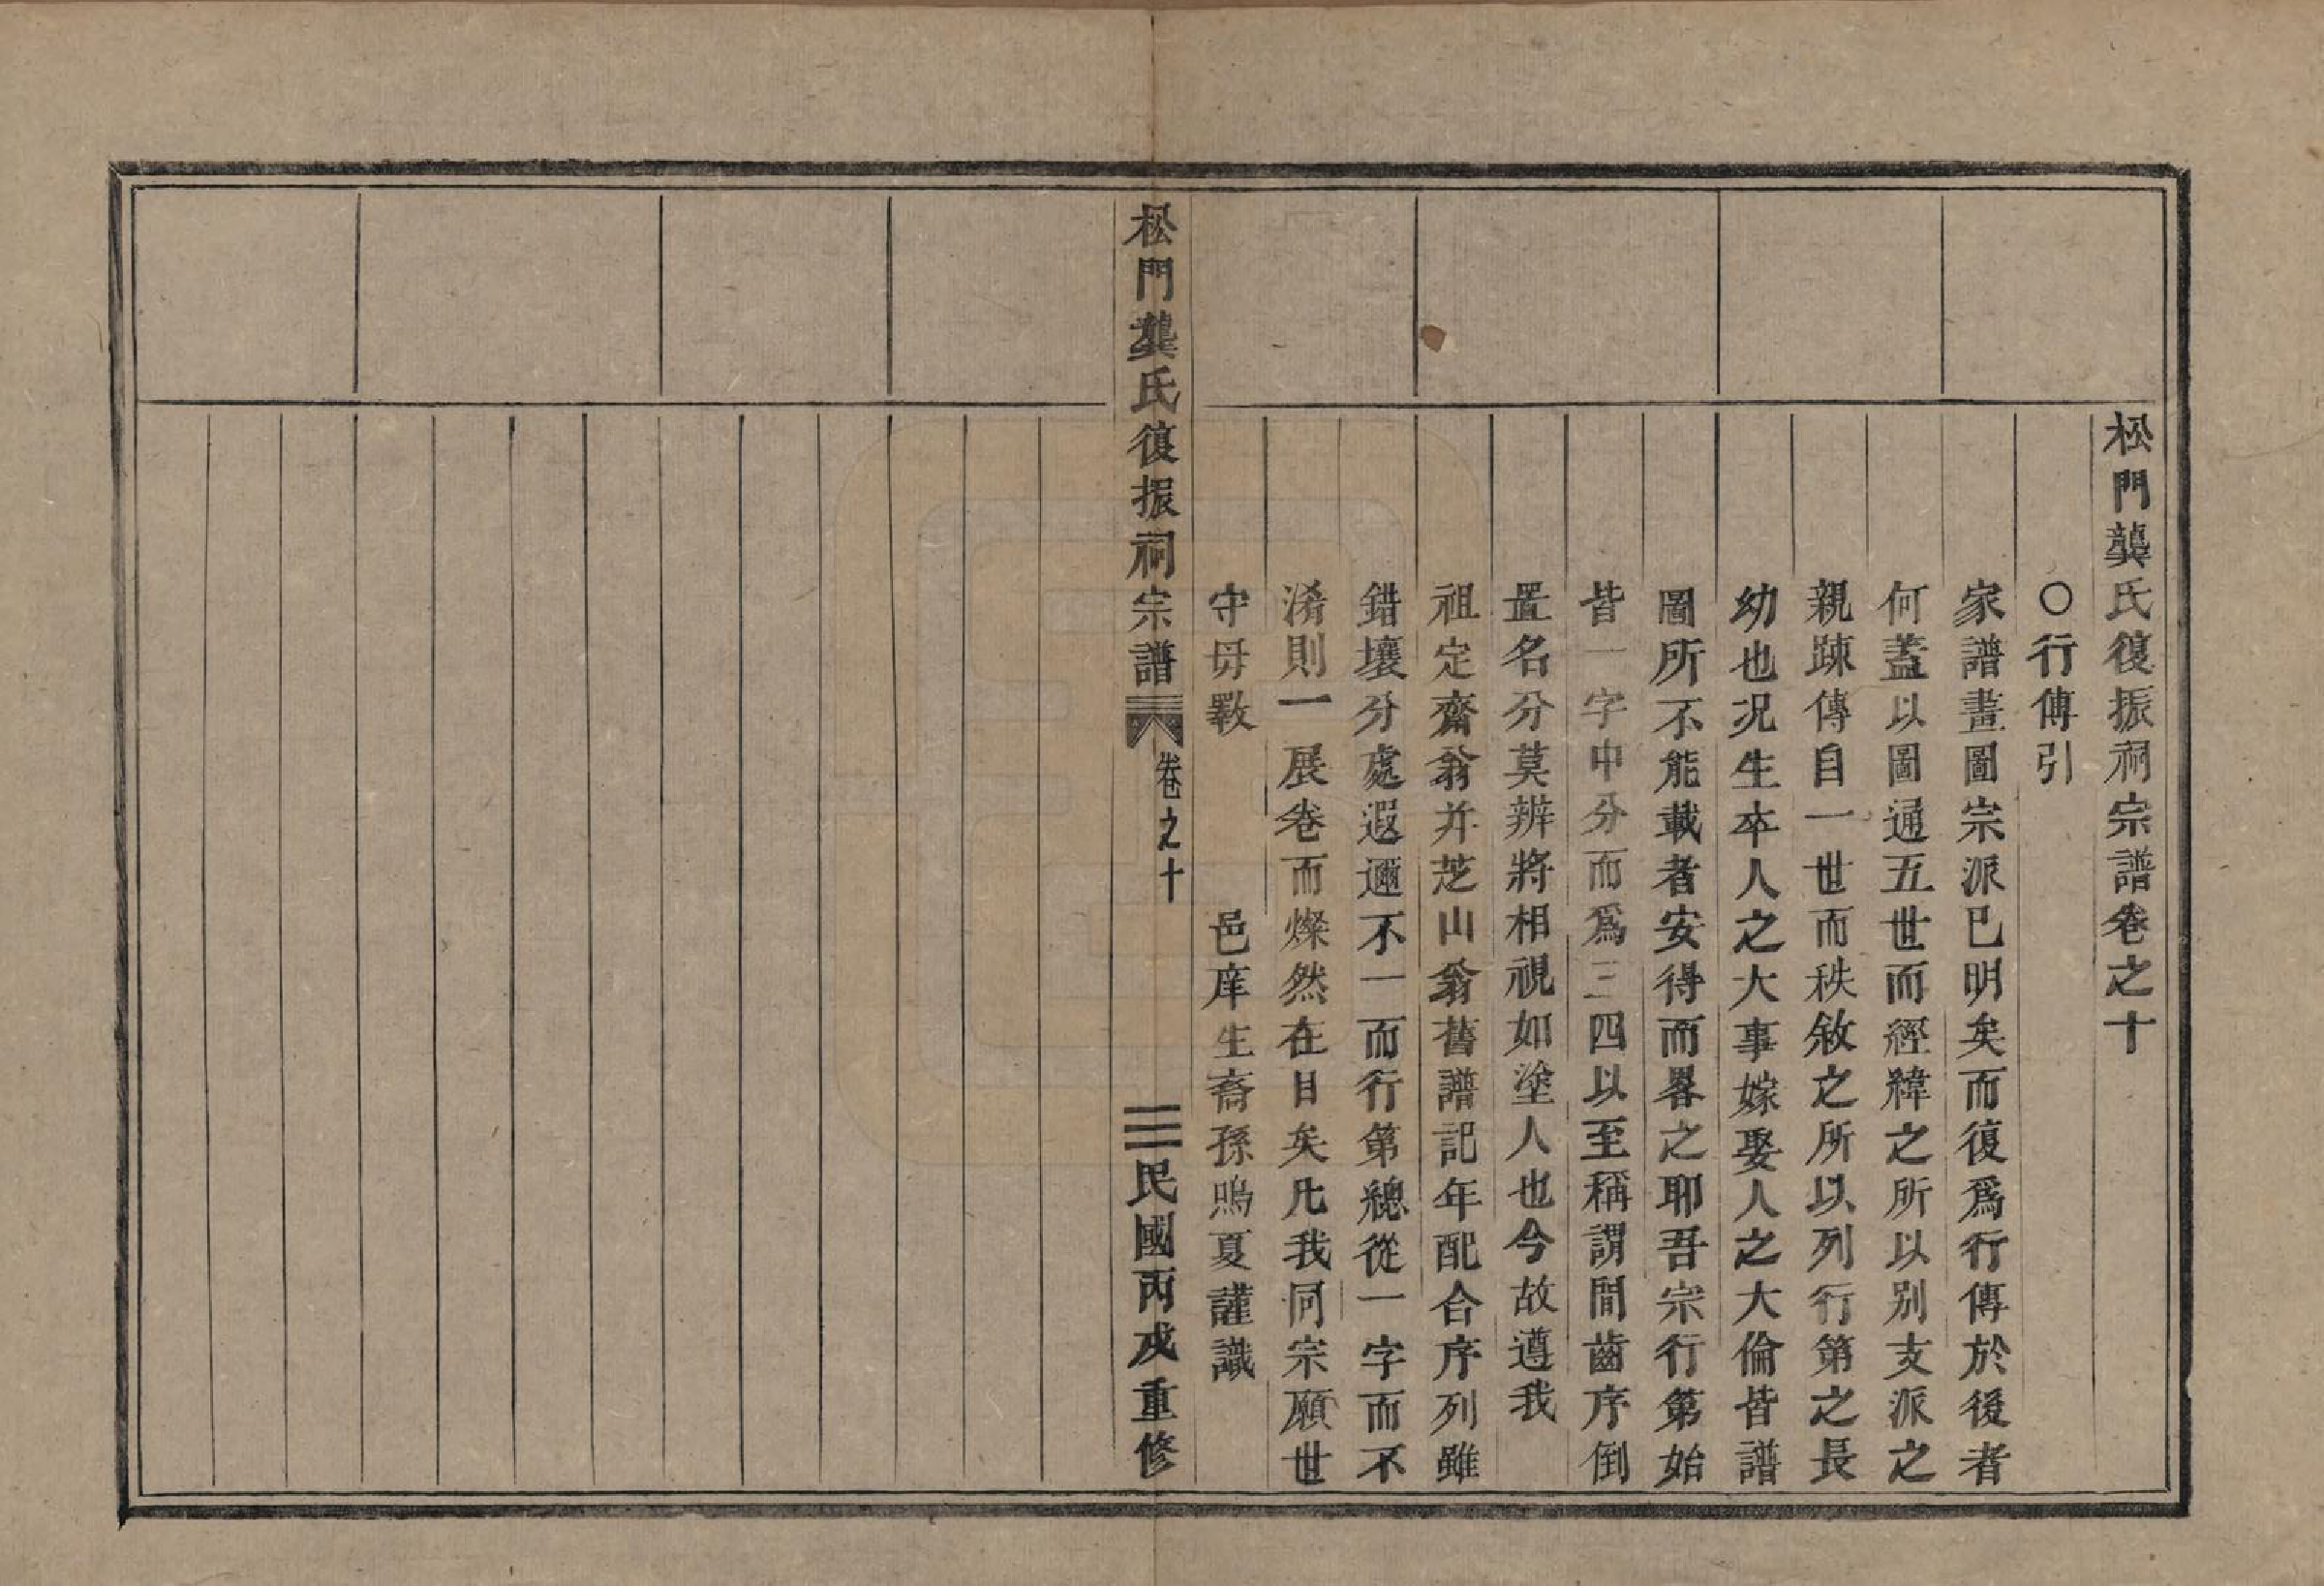 松門龔氏復振祠宗譜卷之十
○行傳引
家譜畫圖宗派已明矣而復爲行傳於後者
何蓋以圖通五世而經緯之所以別支派之
親踈傳自一世而秩敘之所以列行第之長
幼也况生卒人之大事嫁娶人之大倫皆譜
圖所不能載者安得而畧之耶吾宗行第始
皆一字中分而爲三四以至稱謂間齒序倒
置名分莫辨將相視如塗人也今故遵我
祖定齋翁并芝山翁舊譜記年配合序列雖
錯壤分處遐邇不一而行第總從一字而不
淆則一展卷而燦然在目矣凡我同宗願世
守毋斁
邑庠生裔孫鳴夏謹識
松門龔氏復振祠宗譜
卷之十
民國丙戌重修